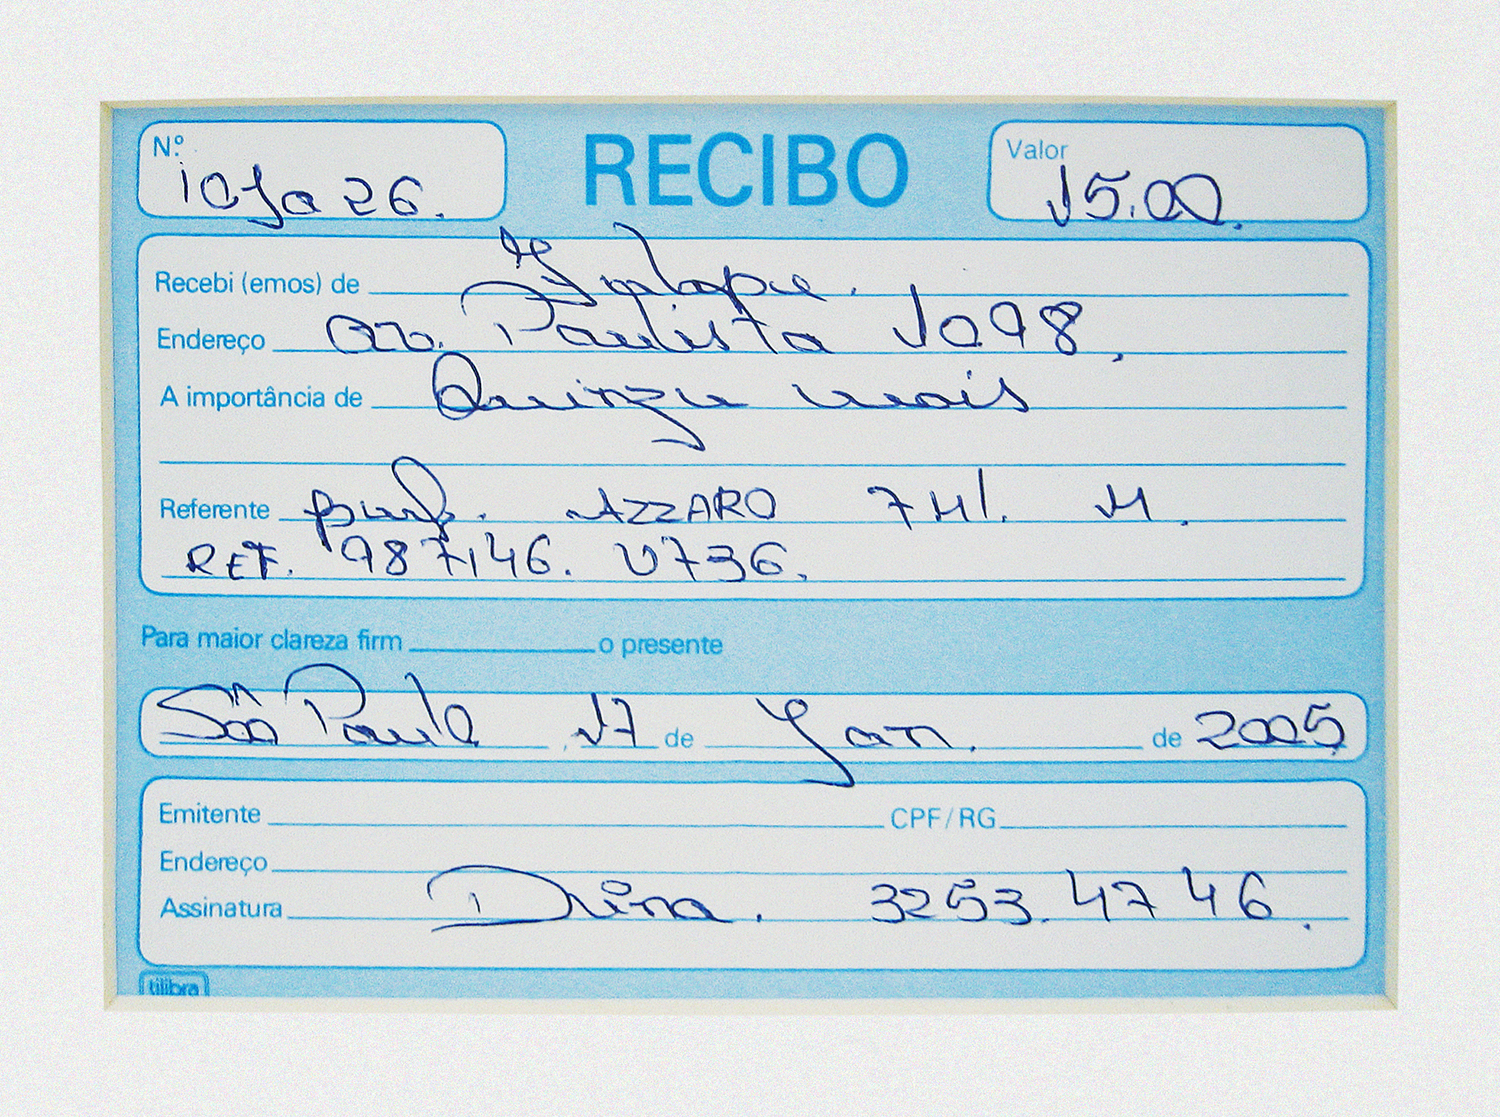 Nº loja 26.
RECIBO
Valor 15.00.
Recebi (emos) de
Endereço av. Paulista 1098,
A importância de Quinze reais
Referente perf. AZZARO 7 Ml. M.
REF. 987146. V736.
Para maior clareza firm o presente
São Paulo, 17 de Jan. de 2005
Emitente CPF/RG
Endereço
Assinatura 3253.4746.
tilibra